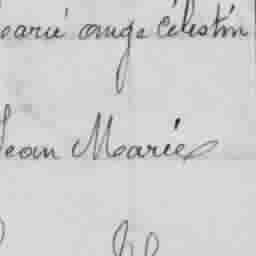 marié ange Célestin
Jean Marie